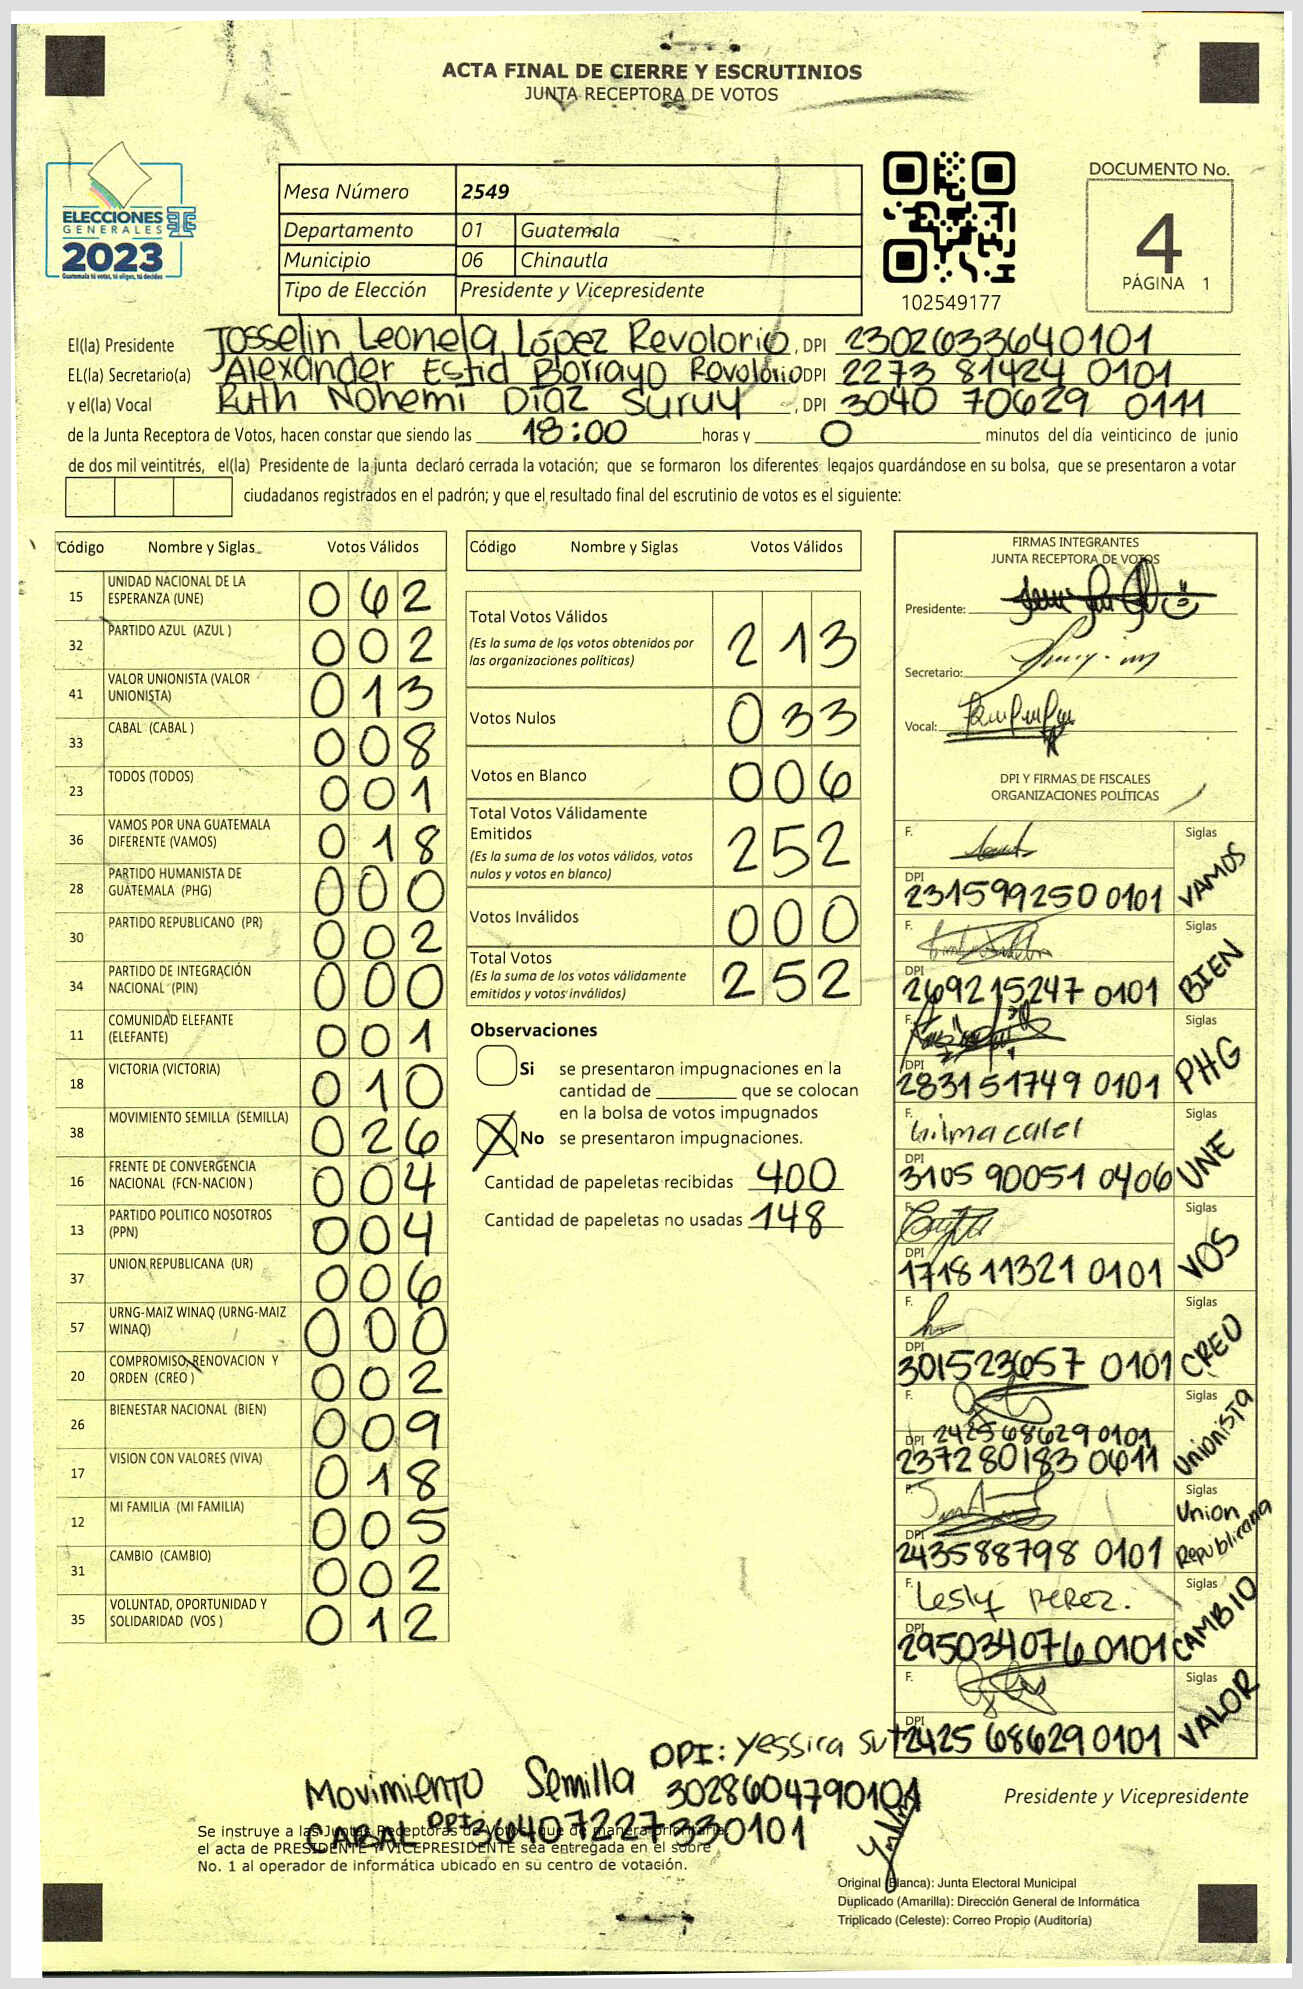 ACTA FINAL DE CIERRE Y ESCRUTINIOS
JUNTA RECEPTORA DE VOTOS
ELECCIONES
GENERALES
2023
Guatemala tú votas, tú eliges, tú decides
Mesa Número 2549
Departamento 01 Guatemala
Municipio 06 Chinautla
Tipo de Elección Presidente y Vicepresidente
102549177
DOCUMENTO No.
4
PÁGINA 1
El(la) Presidente Josselin Leonela López Revolorio, DPI 2302633640101
EL(la) Secretario(a) Alexander Estid Borrayo Revolorio DPI 2273 81424 0101
y el(la) Vocal Ruth Nohemi Díaz Suruy, DPI 3040 70629 0111
de la Junta Receptora de Votos, hacen constar que siendo las 18:00 horas y 0 minutos del día veinticinco de junio
de dos mil veintitrés, el(la) Presidente de la junta declaró cerrada la votación; que se formaron los diferentes legajos guardándose en su bolsa, que se presentaron a votar
ciudadanos registrados en el padrón; y que el resultado final del escrutinio de votos es el siguiente:
Código Nombre y Siglas Votos Válidos
15 UNIDAD NACIONAL DE LA ESPERANZA (UNE) 062
32 PARTIDO AZUL (AZUL ) 002
41 VALOR UNIONISTA (VALOR UNIONISTA) 013
33 CABAL (CABAL ) 008
23 TODOS (TODOS) 001
36 VAMOS POR UNA GUATEMALA DIFERENTE (VAMOS) 018
28 PARTIDO HUMANISTA DE GUATEMALA (PHG) 000
30 PARTIDO REPUBLICANO (PR) 002
34 PARTIDO DE INTEGRACIÓN NACIONAL (PIN) 000
11 COMUNIDAD ELEFANTE (ELEFANTE) 001
18 VICTORIA (VICTORIA) 010
38 MOVIMIENTO SEMILLA (SEMILLA) 026
16 FRENTE DE CONVERGENCIA NACIONAL (FCN-NACION ) 004
13 PARTIDO POLITICO NOSOTROS (PPN) 004
37 UNION REPUBLICANA (UR) 006
57 URNG-MAIZ WINAQ (URNG-MAIZ WINAQ) 000
20 COMPROMISO, RENOVACION Y ORDEN (CREO ) 002
26 BIENESTAR NACIONAL (BIEN) 009
17 VISION CON VALORES (VIVA) 018
12 MI FAMILIA (MI FAMILIA) 005
31 CAMBIO (CAMBIO) 002
35 VOLUNTAD, OPORTUNIDAD Y SOLIDARIDAD (VOS ) 012
Código Nombre y Siglas Votos Válidos
Total Votos Válidos 213
(Es la suma de los votos obtenidos por
las organizaciones políticas)
Votos Nulos 033
Votos en Blanco 006
Total Votos Válidamente
Emitidos 252
(Es la suma de los votos válidos, votos
nulos y votos en blanco)
Votos Inválidos 000
Total Votos 252
(Es la suma de los votos válidamente
emitidos y votos inválidos)
Observaciones
Si se presentaron impugnaciones en la
cantidad de ________ que se colocan
en la bolsa de votos impugnados
X No se presentaron impugnaciones.
Cantidad de papeletas recibidas 400
Cantidad de papeletas no usadas 148
FIRMAS INTEGRANTES
JUNTA RECEPTORA DE VOTOS
Presidente:
Secretario:
Vocal:
DPI Y FIRMAS DE FISCALES
ORGANIZACIONES POLÍTICAS
F. Siglas
DPI 231599250 0101 VAMOS
F. Siglas
DPI 269215247 0101 BIEN
F. Siglas
DPI 283151749 0101 PHG
F. Siglas
DPI 3105 90051 0406 UNE
F. Siglas
DPI 171811321 0101 VOS
F. Siglas
DPI 301523657 0101 CREO
F. Siglas
DPI 242568629 0101
237280183 0611 Unionista
F. Siglas
DPI 243588798 0101 Union Republicana
F. Lesly Perez. Siglas
DPI 295034076 0101 CAMBIO
F. Siglas
DPI 2425 68629 0101 VALOR
DPI: Yessica Sut
Movimiento Semilla 3028604790101
CABAL DPI 3640722733 0101
Presidente y Vicepresidente
Se instruye a las Juntas Receptoras de Votos, que de manera prioritaria,
el acta de PRESIDENTE Y VICEPRESIDENTE sea entregada en el sobre
No. 1 al operador de informática ubicado en su centro de votación.
Original (Blanca): Junta Electoral Municipal
Duplicado (Amarilla): Dirección General de Informática
Triplicado (Celeste): Correo Propio (Auditoría)